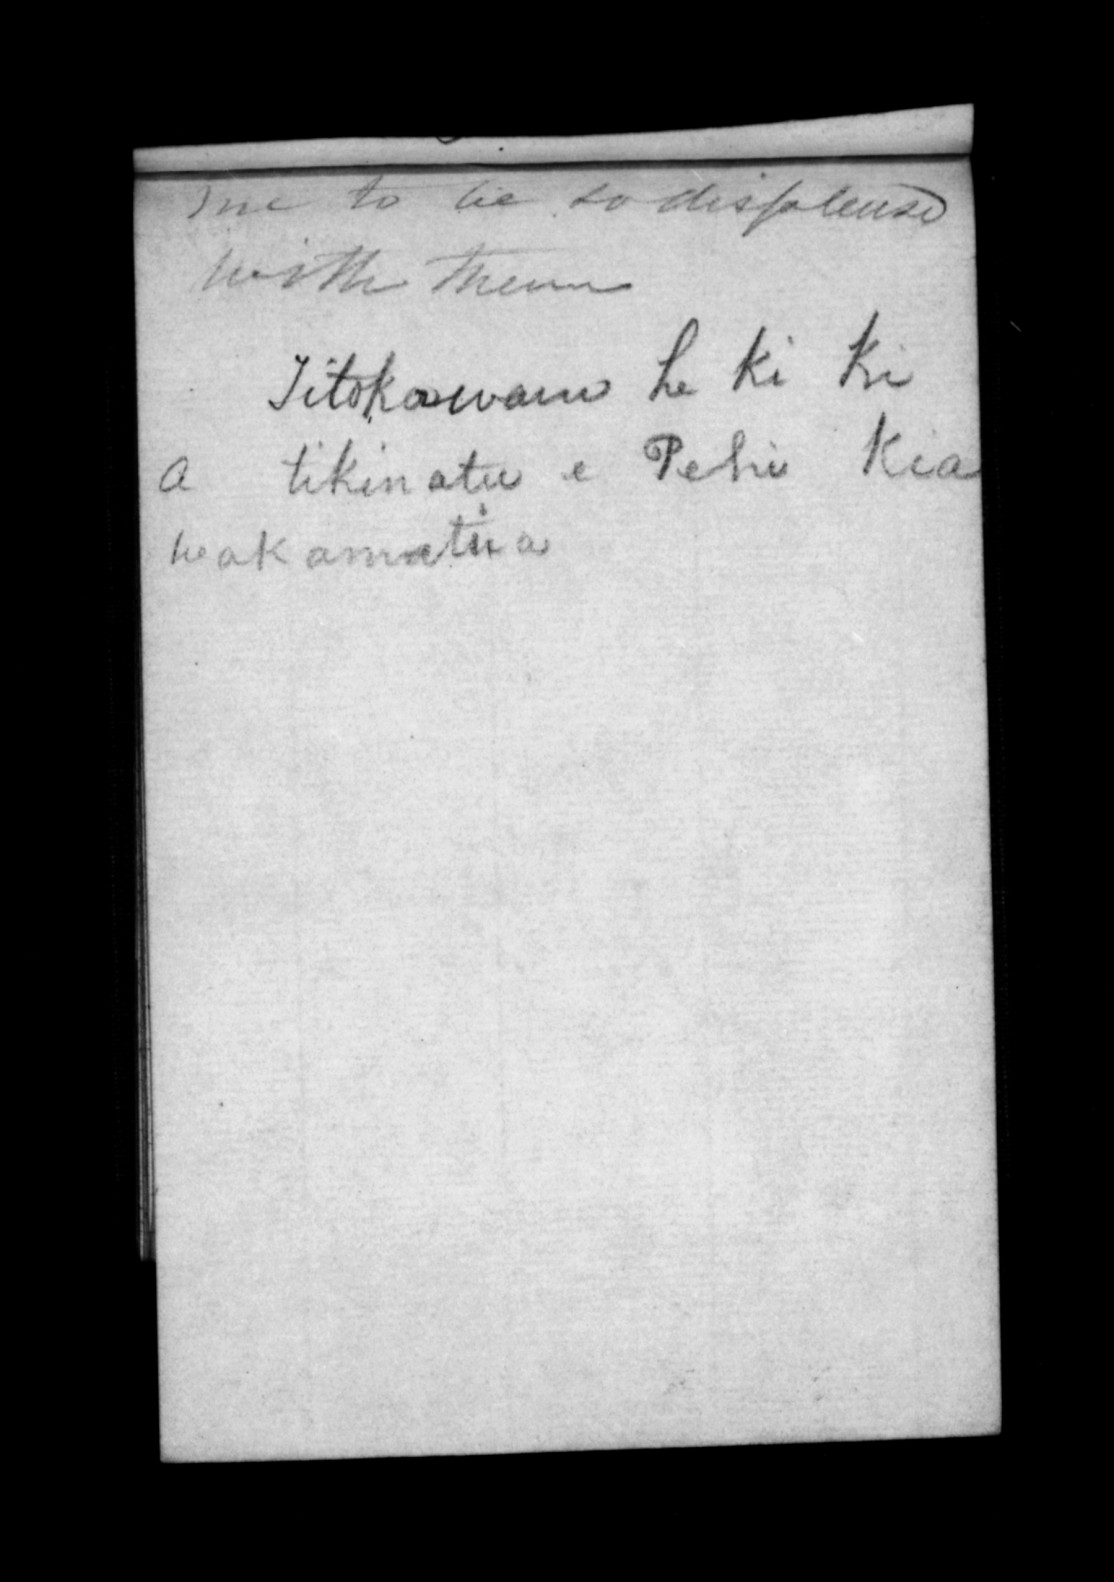 me to be so displeased
with them
Titokowaru he ki ki
a tikinatu e Pehi Kia
weakamatua